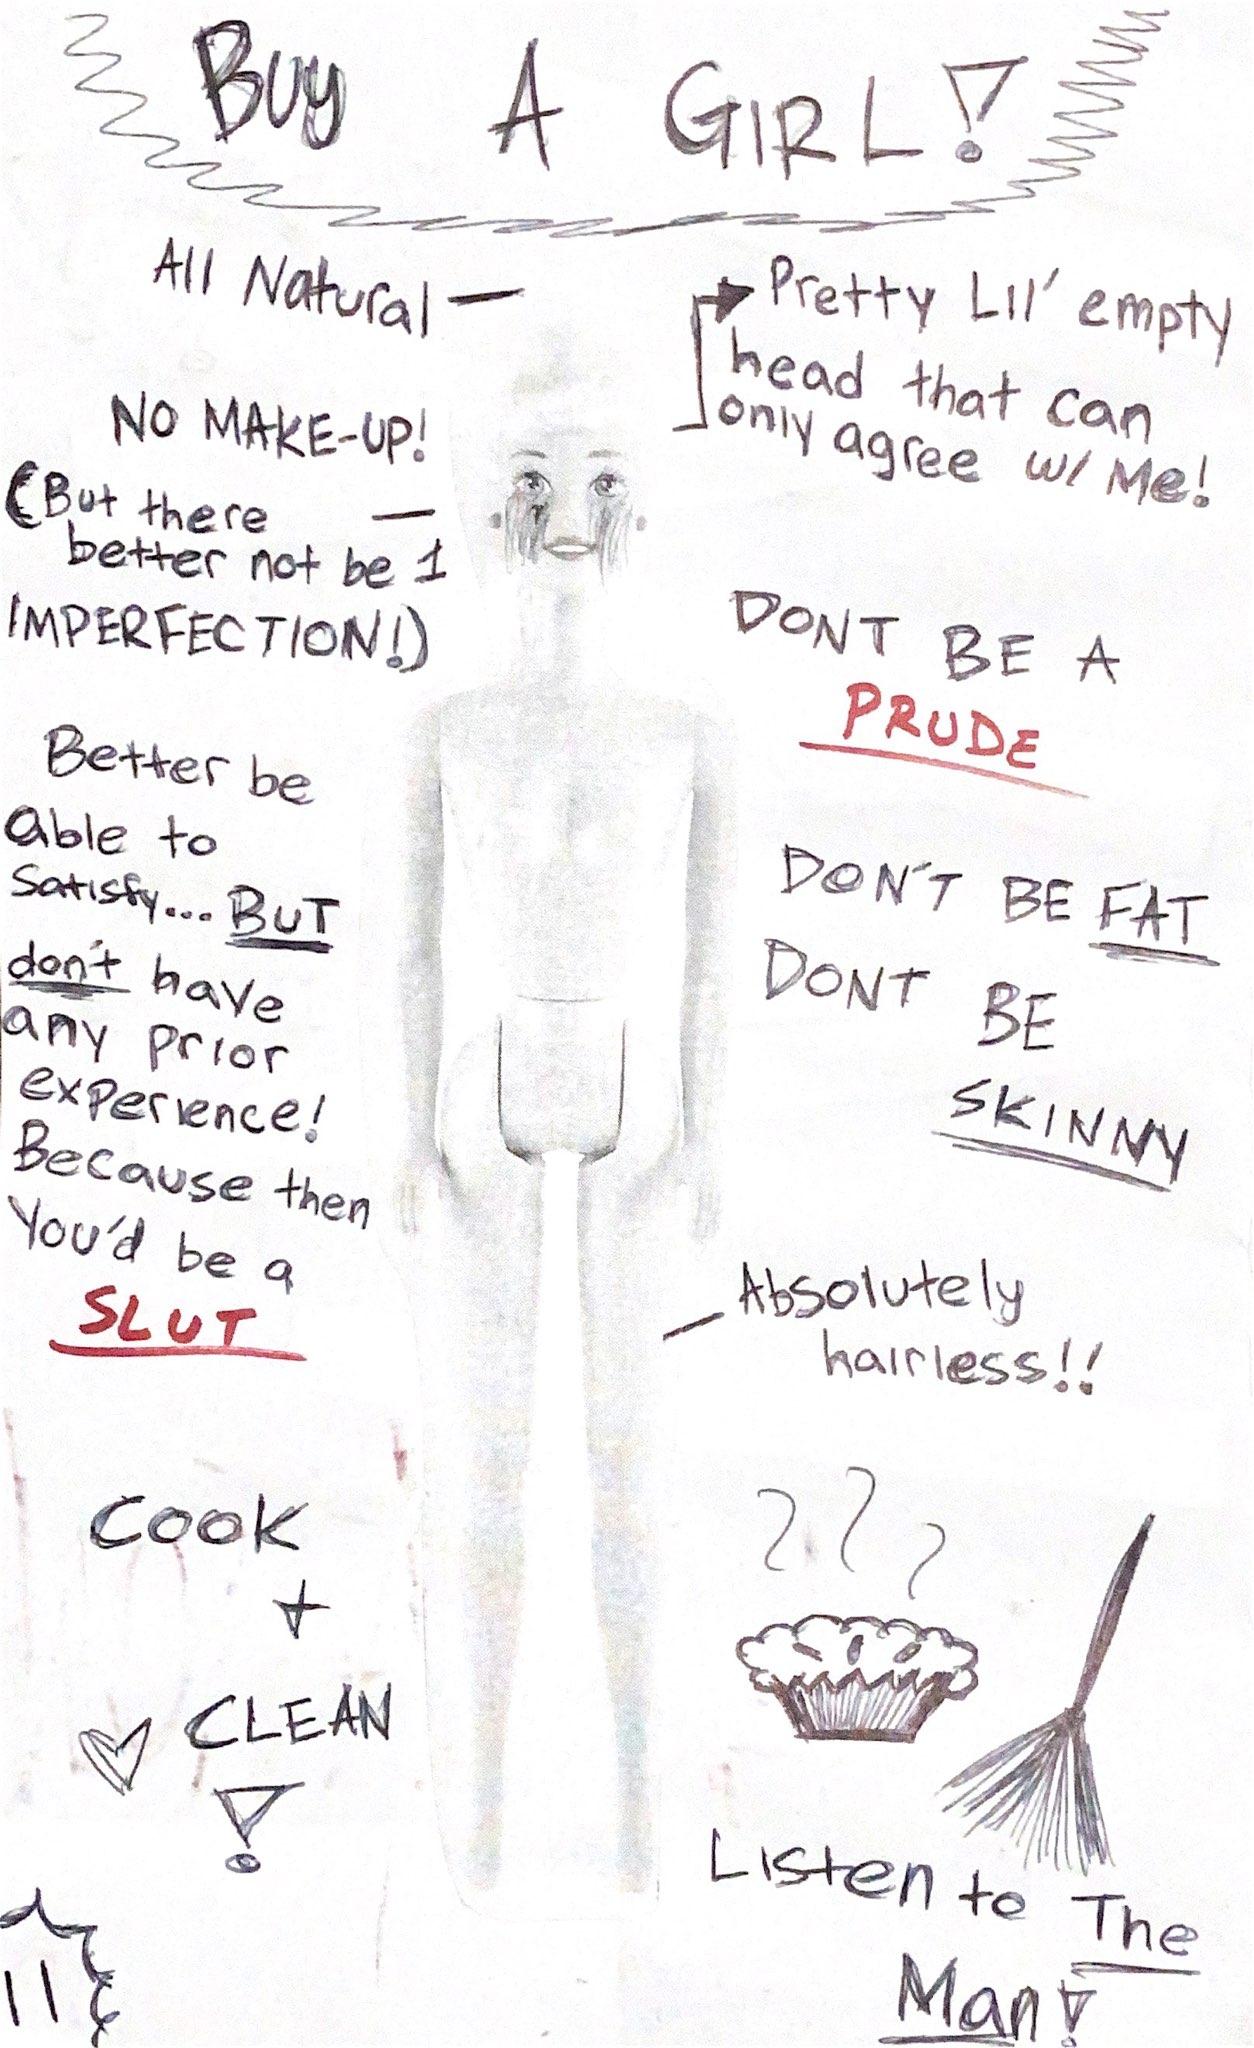 BUY A GIRL!
All Natural
Pretty Lil' empty
head that can
only agree w/ Me!
NO MAKE-UP!
(But there
better not be 1
IMPERFECTION!)
DONT BE A
PRUDE
Better be
able to
satisfy... BUT
don't have
any prior
experience!
Because then
You'd be a
SLUT
DON'T BE FAT
DONT BE
SKINNY
Absolutely
hairless!!
COOK
+
CLEAN
!
Listen to The
Man!